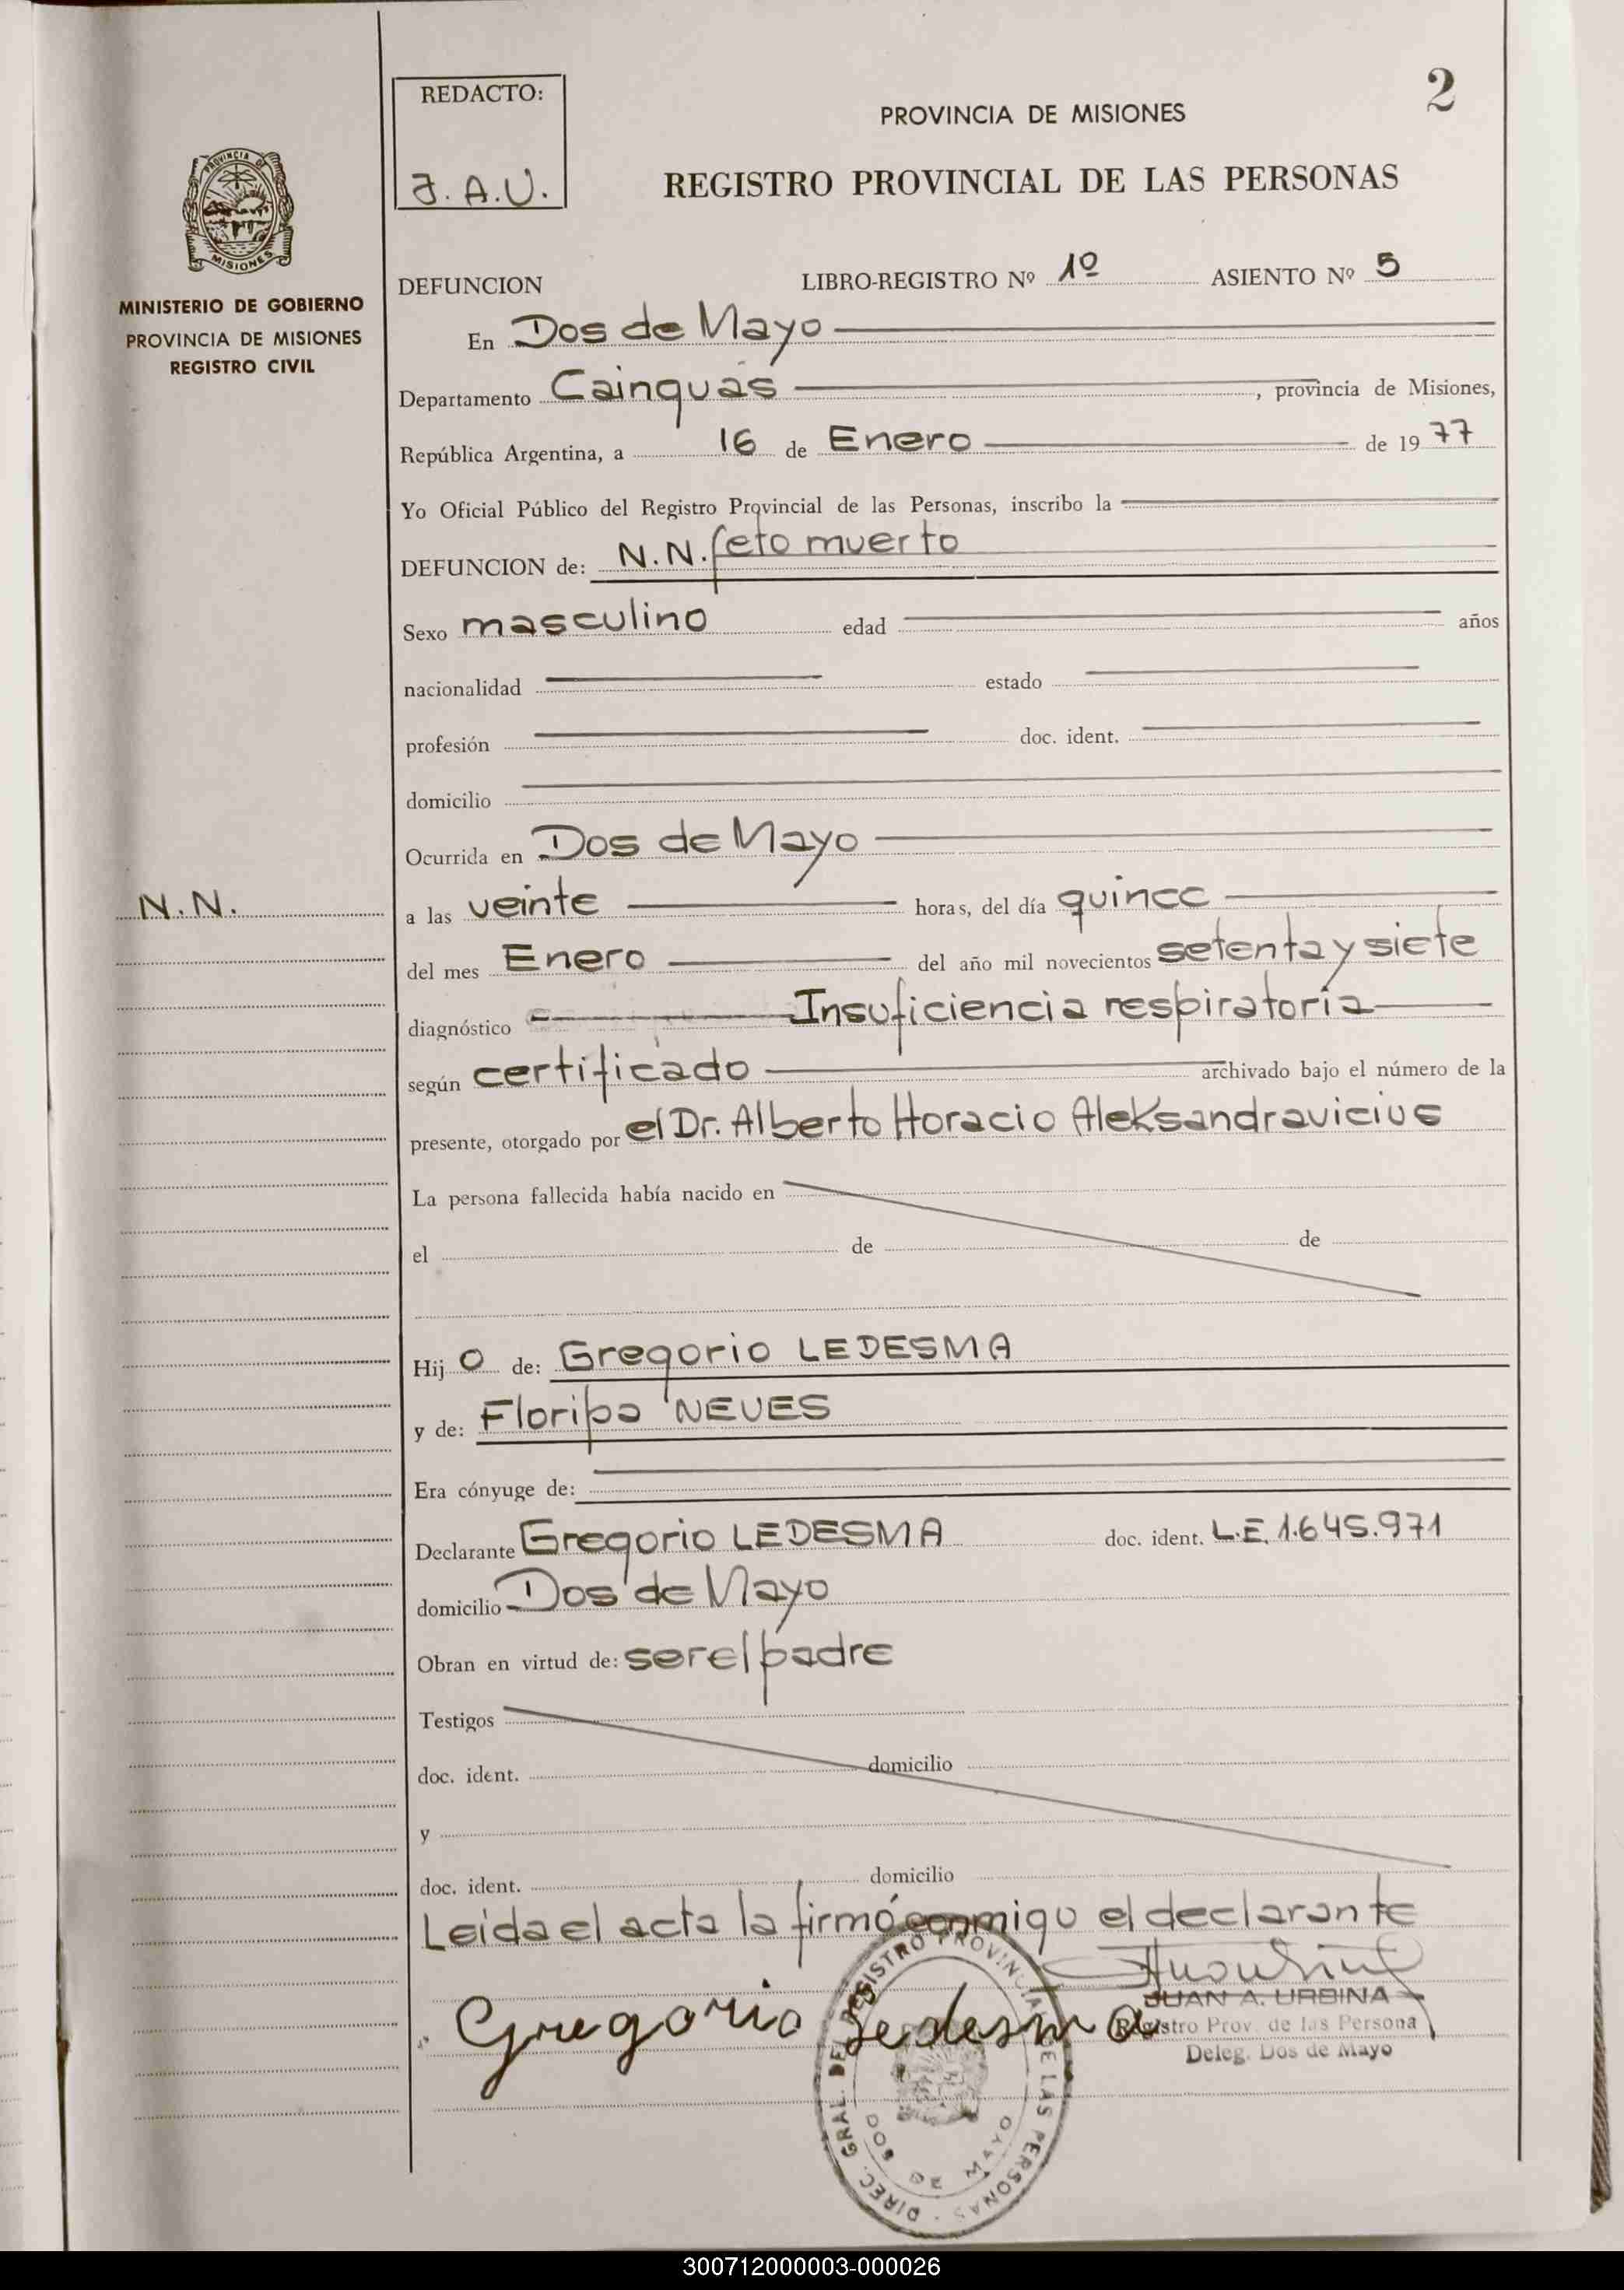 2
REDACTO:
J. A. U.
PROVINCIA DE MISIONES
REGISTRO PROVINCIAL DE LAS PERSONAS
PROVINCIA DE
MISIONES
MINISTERIO DE GOBIERNO
PROVINCIA DE MISIONES
REGISTRO CIVIL
DEFUNCION LIBRO-REGISTRO Nº 1º ASIENTO Nº 5
En Dos de Mayo
Departamento Cainguás, provincia de Misiones,
República Argentina, a 16 de Enero de 1977
Yo Oficial Público del Registro Provincial de las Personas, inscribo la
DEFUNCION de: N.N. feto muerto
Sexo masculino edad años
nacionalidad estado
profesión doc. ident.
domicilio
Ocurrida en Dos de Mayo
N.N.
a las veinte horas, del día quince
del mes Enero del año mil novecientos setenta y siete
diagnóstico Insuficiencia respiratoria
según certificado archivado bajo el número de la
presente, otorgado por el Dr. Alberto Horacio Aleksandravicius
La persona fallecida había nacido en
el de de
Hijo de: Gregorio LEDESMA
y de: Floripa NEVES
Era cónyuge de:
Declarante Gregorio LEDESMA doc. ident. L.E. 1.645.971
domicilio Dos de Mayo
Obran en virtud de: ser el padre
Testigos
doc. ident. domicilio
y
doc. ident. domicilio
Leida el acta la firmó conmigo el declarante
Gregorio Ledesma
JUAN A. URBINA
Registro Prov. de las Persona
Deleg. Dos de Mayo
DIREC. GRAL. DEL REGISTRO PROVINCIAL DE LAS PERSONAS
DOS DE MAYO
300712000003-000026